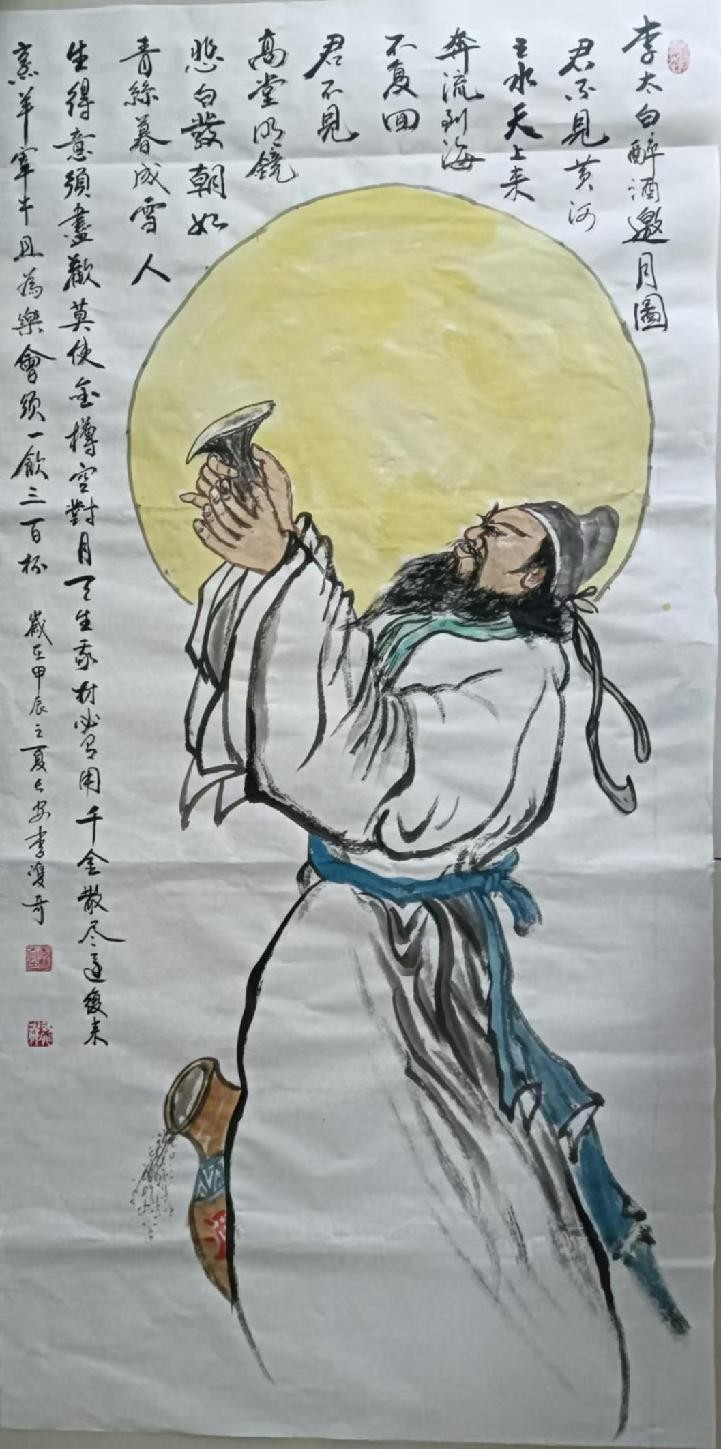 李太白醉酒邀月圖
君不見黄河
之水天上来
奔流到海
不复回
君不見
高堂明鏡
悲白发朝如
青絲暮成雪人
生得意須盡歡莫使金樽空對月天生我材必有用千金散尽還復来
烹羊宰牛且為樂會须一飲三百杯
歲在甲辰之夏長安李雙奇